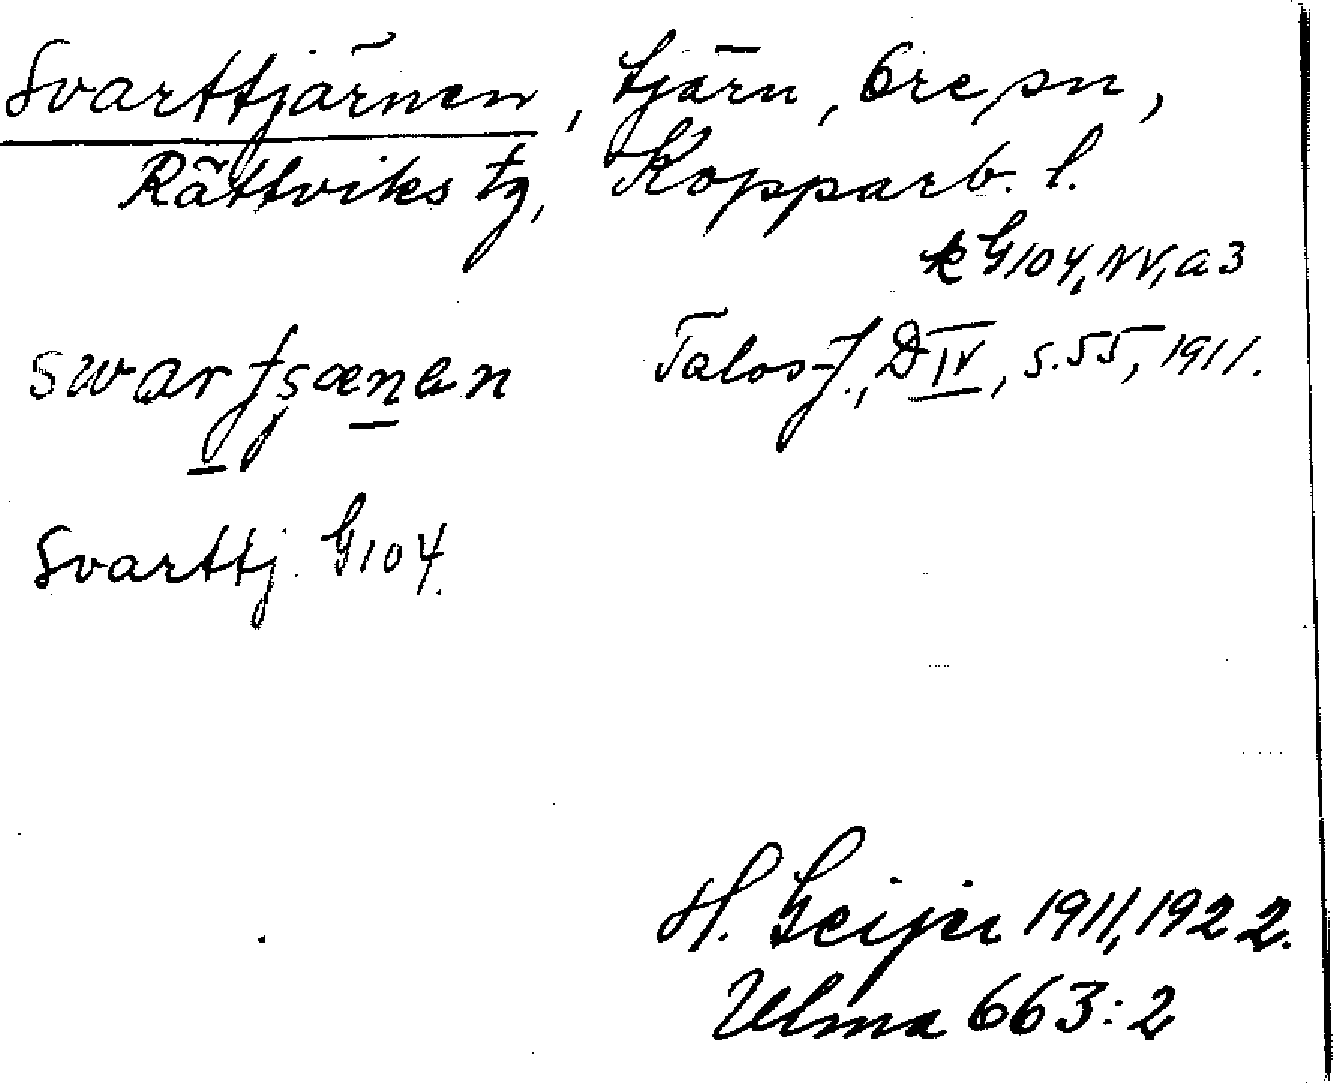 Svarttjärnen, tjärn, Ore sn,
Rättviks tg, Kopparb. l.
k G104, NV, a3
Talos f., D IV, s. 55, 1911.
Svarttj. G104.
H. Geijer 1911, 1922.
Ulma 663:2